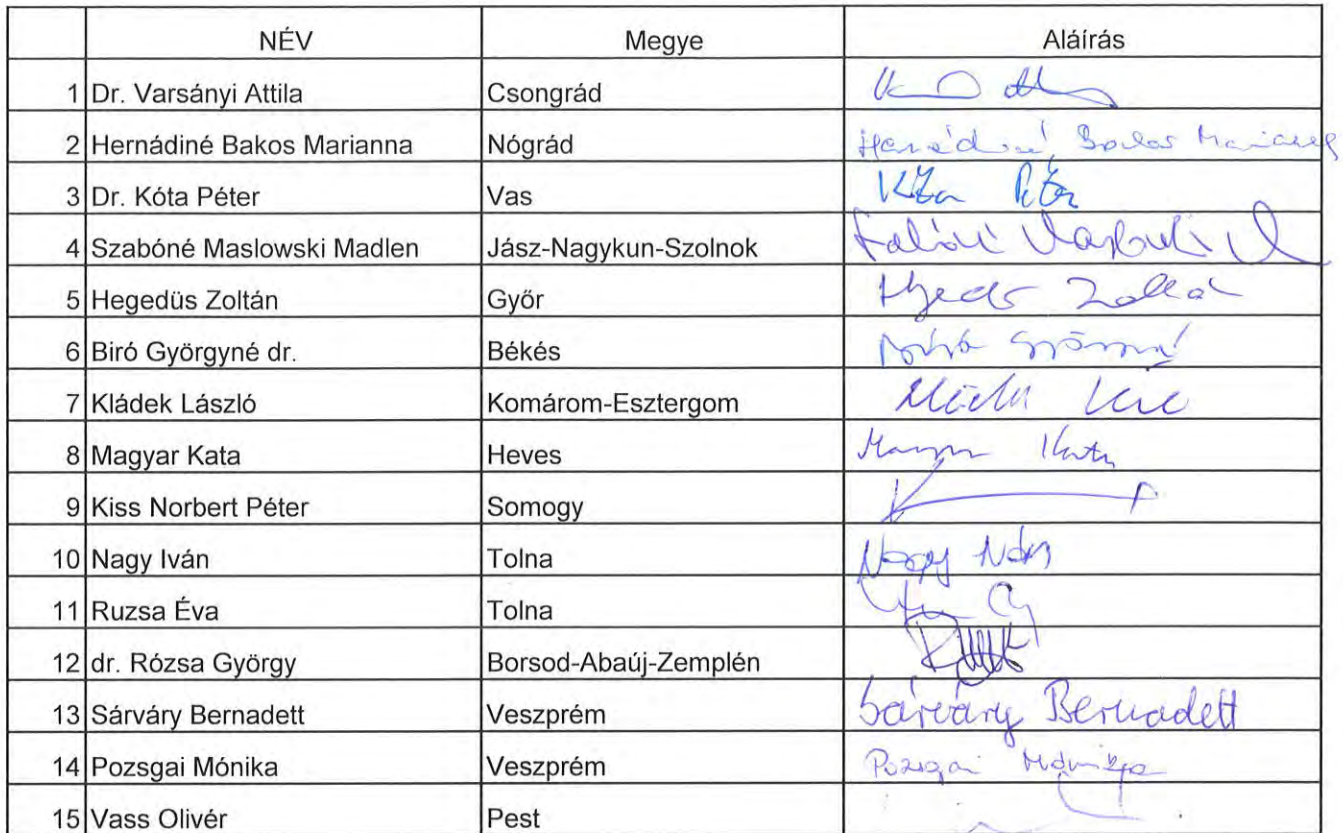 NÉV Megye Aláírás
1 Dr. Varsányi Attila Csongrád
2 Hernádiné Bakos Marianna Nógrád Hernádiné Bakos Marianna
3 Dr. Kóta Péter Vas Kóta Péter
4 Szabóné Maslowski Madlen Jász-Nagykun-Szolnok
5 Hegedüs Zoltán Győr Hegedüs Zoltán
6 Biró Györgyné dr. Békés Biró Györgyné
7 Kládek László Komárom-Esztergom
8 Magyar Kata Heves Magyar Kata
9 Kiss Norbert Péter Somogy
10 Nagy Iván Tolna Nagy Iván
11 Ruzsa Éva Tolna
12 dr. Rózsa György Borsod-Abaúj-Zemplén
13 Sárváry Bernadett Veszprém Sárváry Bernadett
14 Pozsgai Mónika Veszprém Pozsgai Mónika
15 Vass Olivér Pest